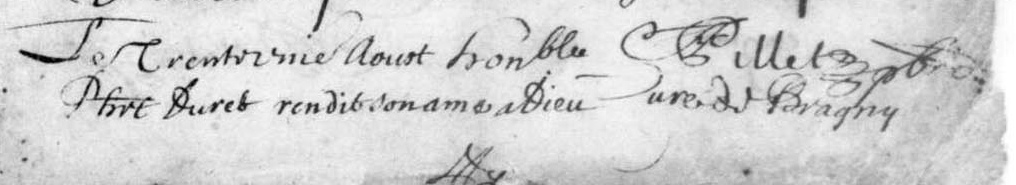 Le Trentiesme Aoust honble C Pillet pbre
Phrt Duret rendit son ame a Dieu Curé de Bragny